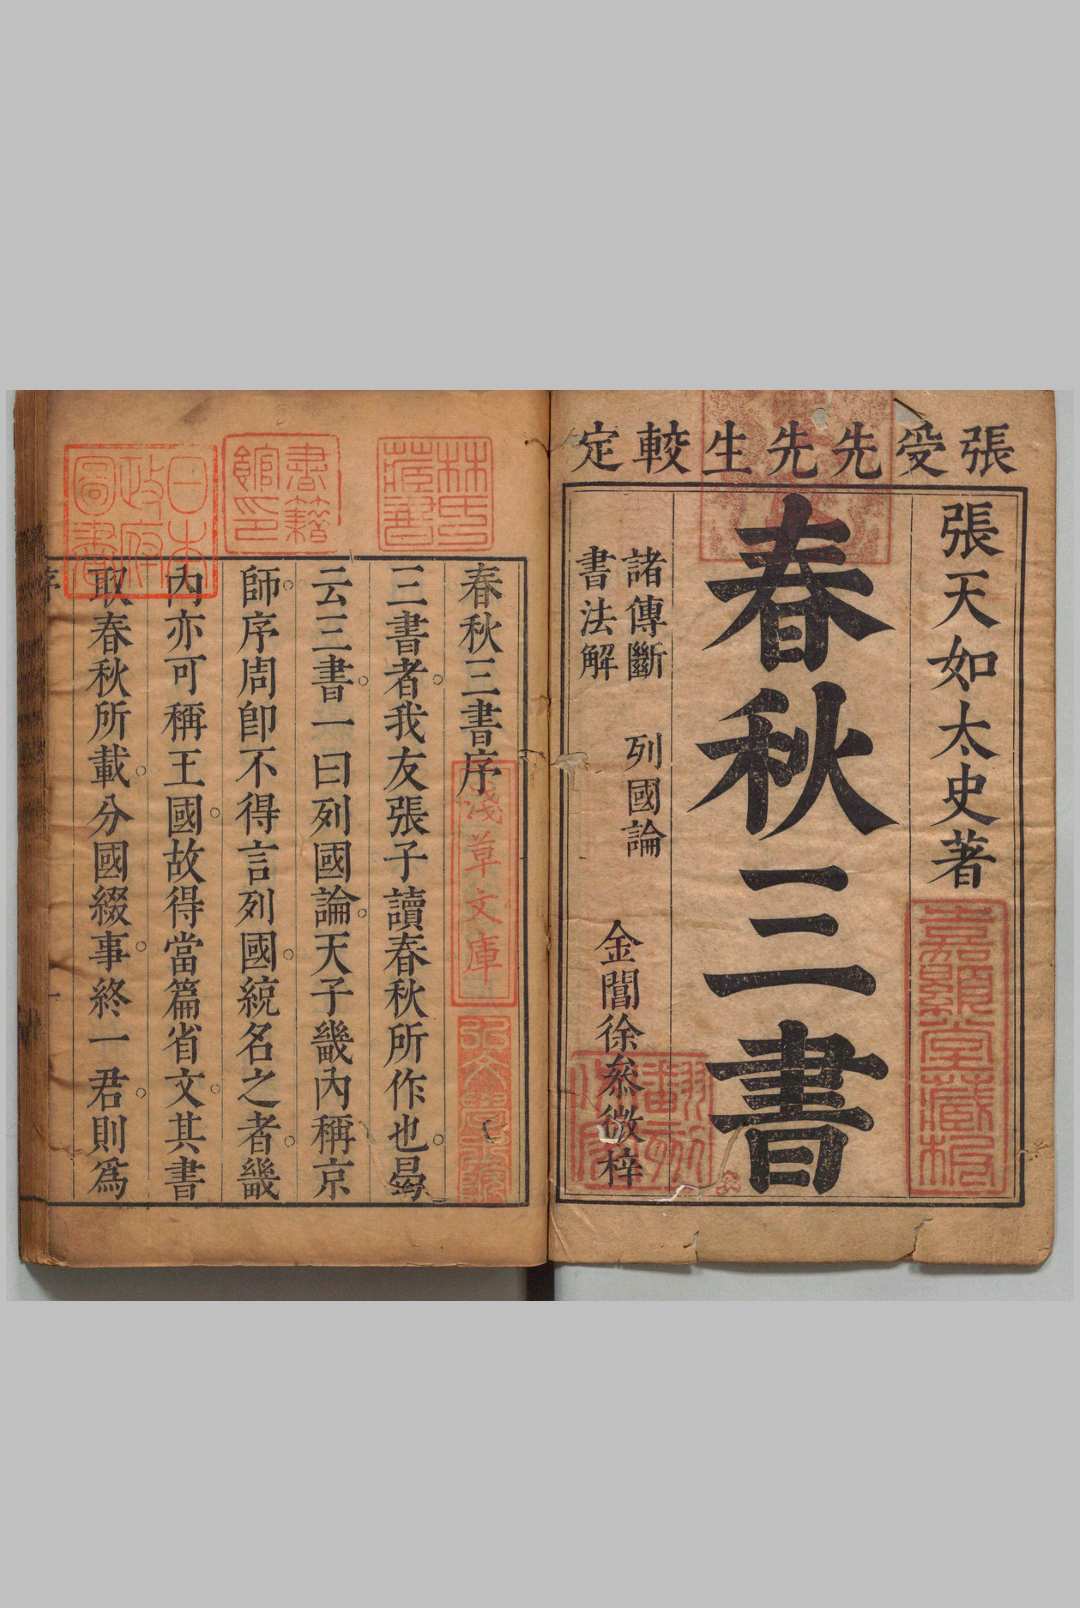 張受先先生較定
張天如太史著
春秋三書
諸傳斷 列國論
書法解
金閶徐叅微梓
嘉穎堂藏板
翻刻
春秋三書序
三書者我友張子讀春秋所作也曷
云三書一曰列國論天子畿內稱京
師序周卽不得言列國統名之者畿
內亦可稱王國故得當篇省文其書
取春秋所載分國綴事終一君則爲
林氏藏書
淺草文庫
書籍館印
日本政府圖書